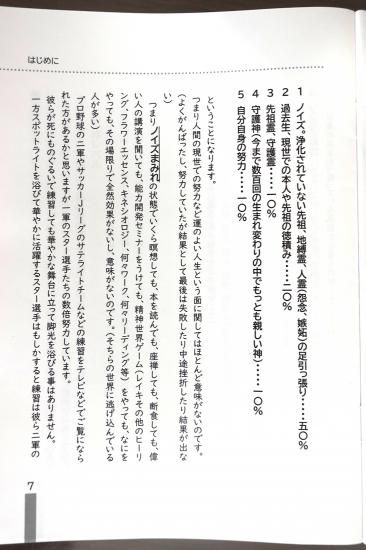 はじめに
1 ノイズ。浄化されていない先祖、地縛霊、人霊(怨念、嫉妬)の足引っ張り・・・・・五〇%
2 過去生、現世での本人や先祖の徳積み・・・・・二〇%
3 先祖霊、守護霊・・・・・一〇%
4 守護神(今まで数百回の生まれ変わりの中でもっとも親しい神)・・・・・一〇%
5 自分自身の努力・・・・・一〇%
ということになります。
つまり人間の現世での努力など運のよい人生という面に関してはほとんど意味がないのです。
(よくがんばったし、努力していたが結果として最後は失敗したり中途挫折したり結果が出な
い)
つまりノイズまみれの状態でいくら瞑想しても、本を読んでも、座禅しても、断食しても、偉
い人の講演を聞いても、能力開発セミナーをうけても、精神世界ゲーム(レイキその他のヒーリ
ング、フラワーエッセンス、キネシオロジー、何々ワーク、何々リーディング等)をやっても、なにを
やっても、その場限りで全然効果がないし、意味がないのです。(そちらの世界に逃げ込んでいる
人が多い)
プロ野球の二軍やサッカーJリーグのサテライトチームなどの練習をテレビなどでご覧になら
れた方があるかと思いますが一軍のスター選手たちの数倍努力しています。
彼らが死にものぐるいで練習しても華やかな舞台に立って脚光を浴びる事はありません。
一方スポットライトを浴びて華やかに活躍するスター選手はもしかすると練習は彼ら二軍の
7